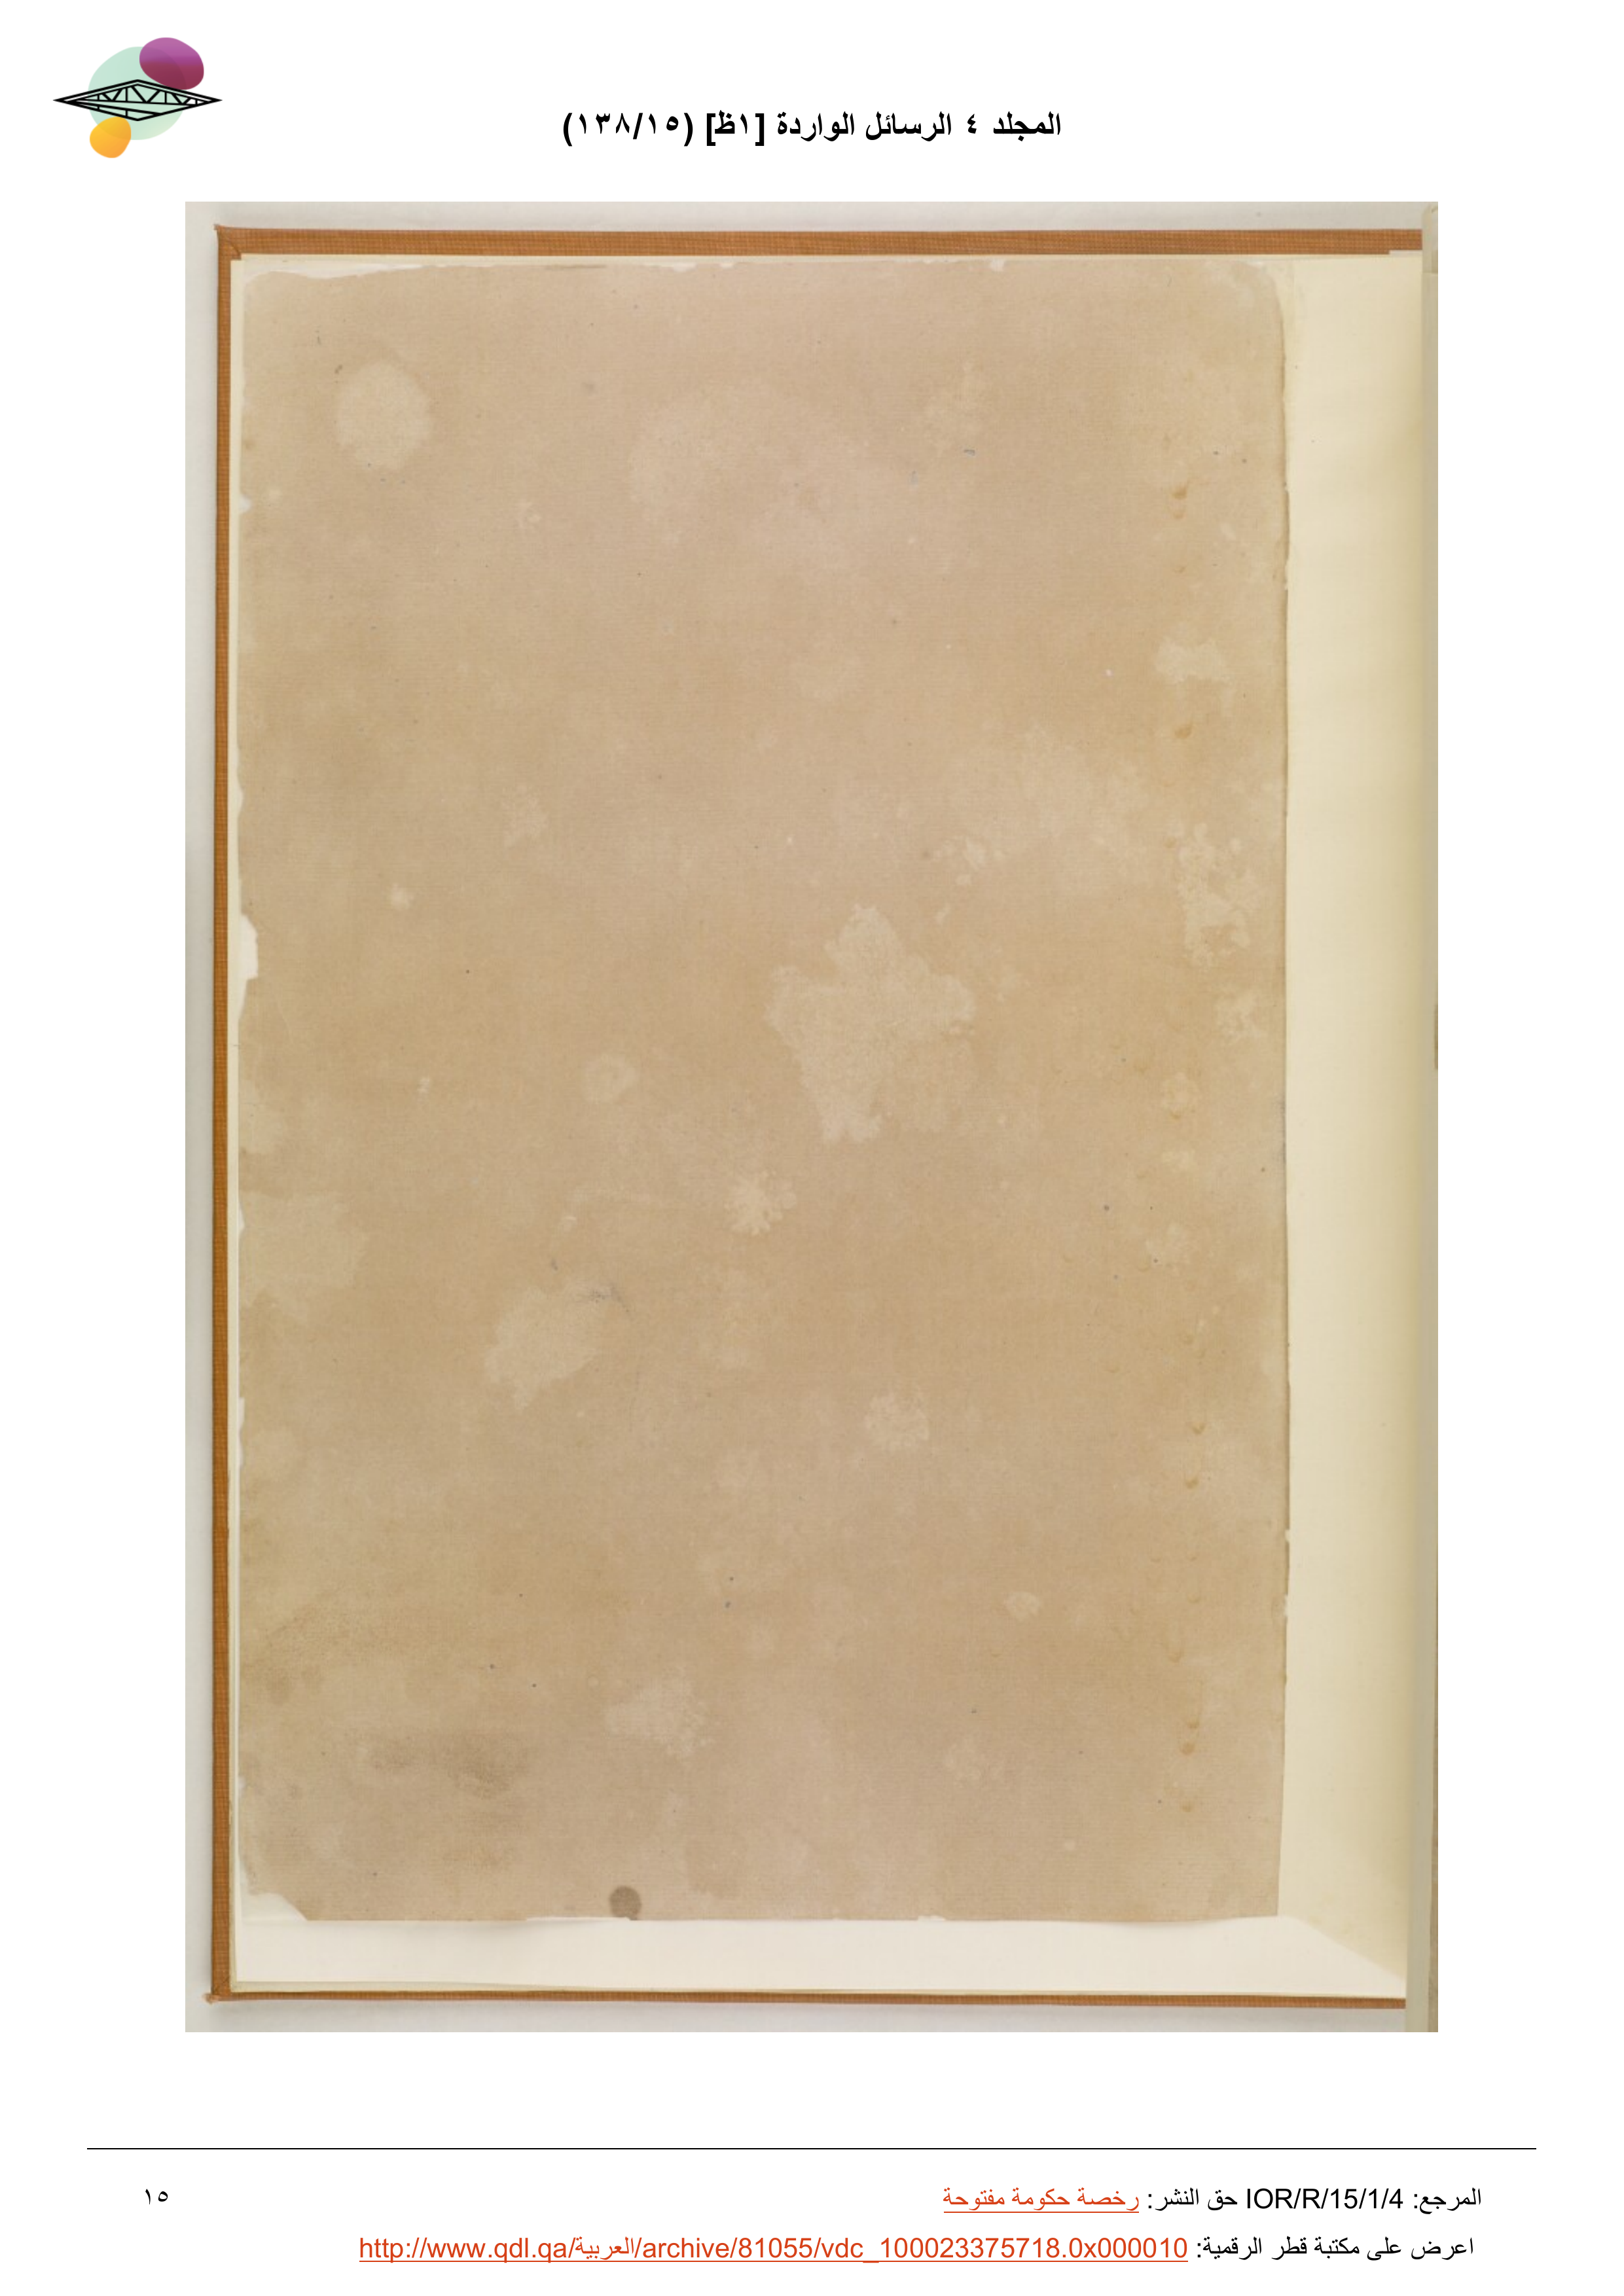 المجلد ٤ الرسائل الواردة [١ظ] (١٣٨/١٥)
المرجع: IOR/R/15/1/4 حق النشر: رخصة حكومة مفتوحة
١٥
اعرض على مكتبة قطر الرقمية: http://www.qdl.qa/العربية/archive/81055/vdc_100023375718.0x000010